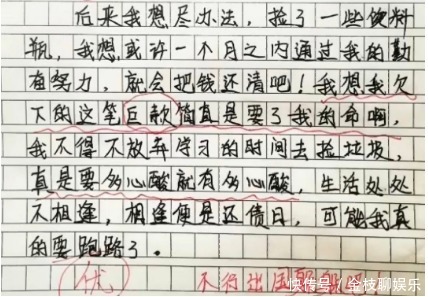 后来我想尽办法，捡了一些饮料
瓶，我想或许一个月之内通过我的勤
奋努力，就会把钱还清吧！我想我欠
下的这笔巨款简直是要了我的命啊，
我不得不放弃学习的时间去捡垃圾，
真是要多心酸就有多心酸，生活处处
不相逢，相逢便是还债日，可能我真
的要跑路了。
优 不行出国
快传号/金枝聊娱乐